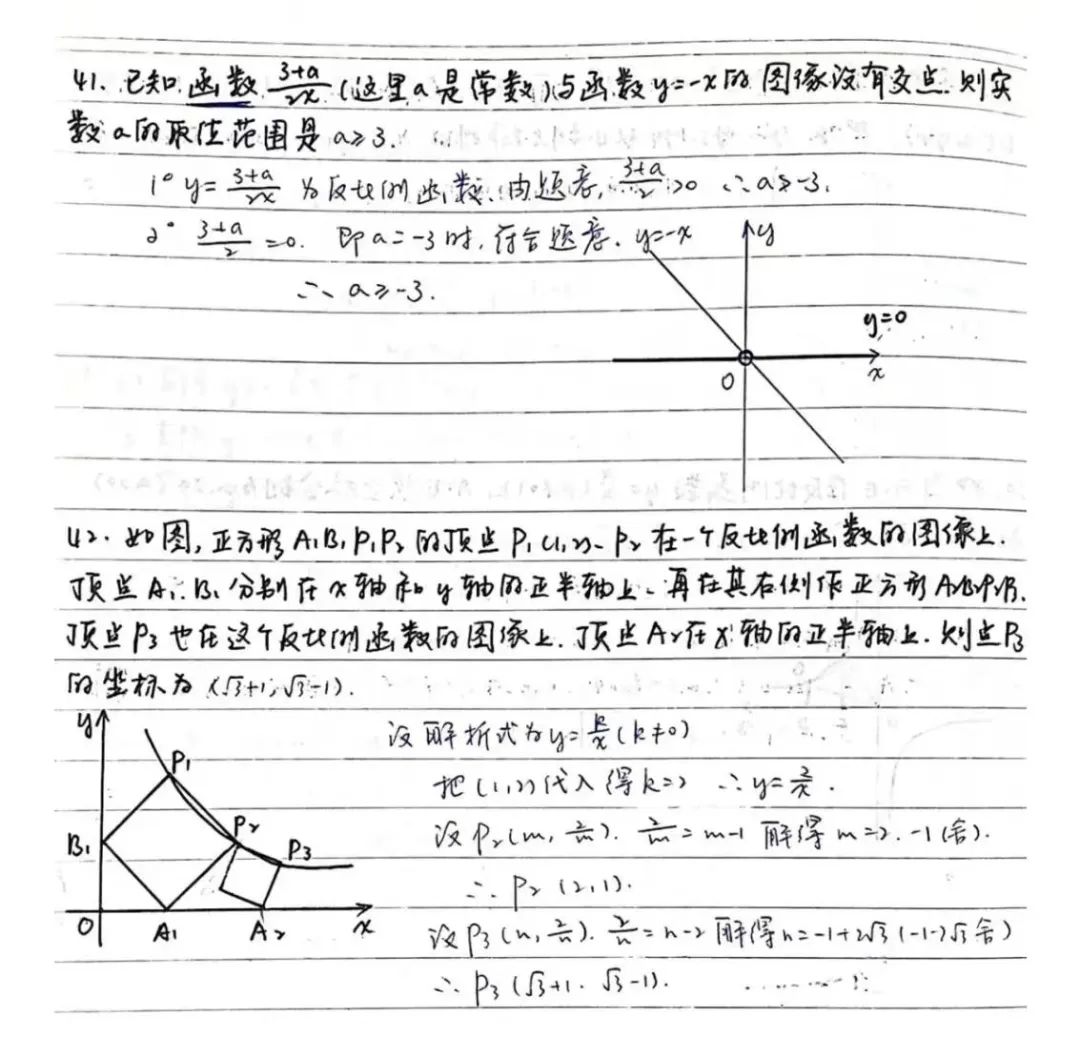 41. 已知函数 (3+a)/2x (这里a是常数)与函数y=-x的图像没有交点.则实
数a的取值范围是 a≥3.
1° y=(3+a)/2x 为反比例函数.由题意,(3+a)/2>0 ∴a>-3.
2° (3+a)/2=0. 即a=-3时,符合题意.
∴a≥-3.
y=-x
y
y=0
O
x
42. 如图,正方形A1B1P1P2的顶点P1(1,2)、P2在一个反比例函数的图像上.
顶点A1.B1分别在x轴和y轴的正半轴上.再在其右侧作正方形
顶点P3也在这个反比例函数的图像上.顶点A2在x轴的正半轴上.则点P3
的坐标为 (√3+1,√3-1).
设解析式为y=k/x(k≠0)
把(1,2)代入得k=2 ∴y=2/x.
设P2(m,2/m). 2/m=m-1 解得m=2.-1(舍).
∴P2(2,1).
设P3(n,2/n). 2/n=n-2 解得n=-1+2√3(-1-2√3舍)
∴P3(√3+1.√3-1).
y
P1
B1
P2
P3
O
A1
A2
x